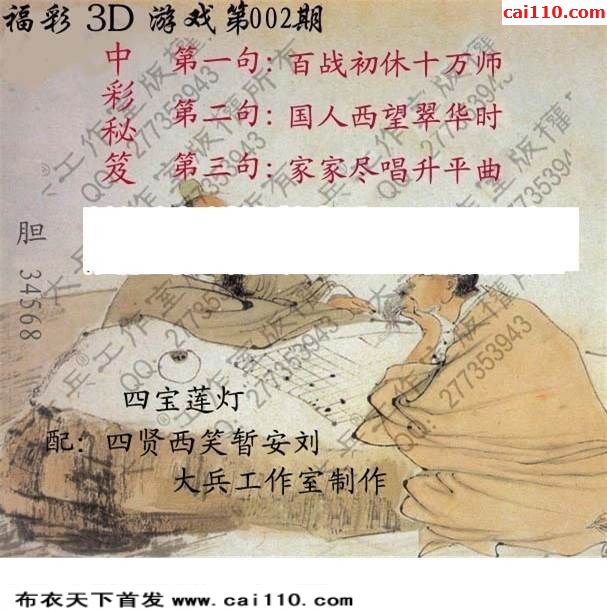 cai110.com
福彩 3D 游戏第002期
中彩秘笈
第一句：百战初休十万师
第二句：国人西望翠华时
第三句：家家尽唱升平曲
胆 34568
四宝莲灯
配：四贤西笑暂安刘
大兵工作室制作
大兵®工作室版权所有
QQ：277353943
布衣天下首发 www.cai110.com